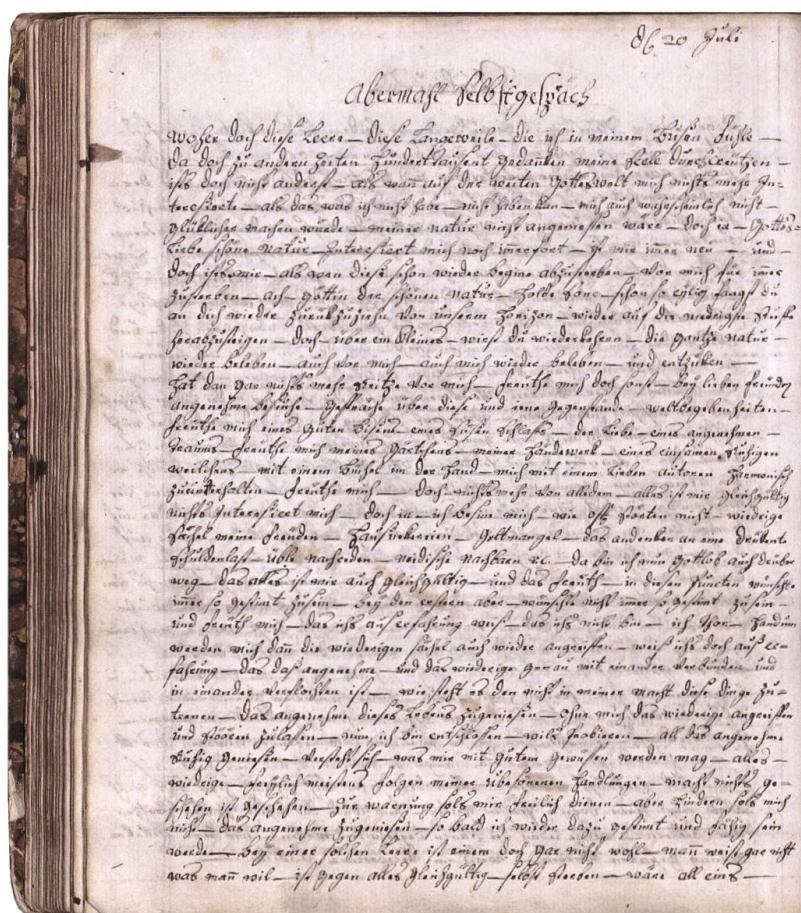 d 20 Juli
Abermahl Selbstgespräch
Woher doch diese Leere – diese Langeweile – die ich in meinem Busen fühle –
da doch zu andern Zeiten hunderttausent gedanken meine Seele durchkreutzen –
ists doch nicht anderst – als wan auf der weiten Gotteswelt mich nichts mehr In-
teresierte – als das was ich nicht habe – nicht haben kan – mich auch wahrscheinlich nicht –
glüklicher machen würde – meiner natur nicht angemessen wäre – doch ja – Gottes-
liebe schöne Natur – Interesiert mich noch immerfort – ist mir immer neu – und –
doch ists mir – als wan diese schon wieder begine abzusterben – vor mich für immer
zusterben – ach – göttin der schönen Natur – holde Sone – schon so eylig fangst du
an dich wieder zurükzuziehn von unserem Horizon – wieder auf die niedrigste Stuffe
herabzusteigen – doch – über ein kleines – wirst du wiederkehren – die gantze natur –
wieder beleben – auch vor mich – auch mich wieder beleben – und entzüken –
hat dan gar nichts mehr Reitze vor mich – freuthe mich doch sonst – bey lieben freunden
angenehme besuche – gespräche über diese und jene gegenstände – weltbegebenheiten –
freuthe mich eines guten bisens eines süsen schlafs – der Liebe – eines angenehmen –
traums – freuthe mich meines gärtchens – meiner Handewerk – eines einsamen ruhigen
weilchens – mit einem buchel in der Hand – mich mit einem lieben autoren harmonisch
zuunterhalten – freuthe mich – doch nichts mehr von alledem – alles ist mir gleichgültig
nichts Interesiert mich – doch ja – ich besine mich – wie oft störten nicht – wiedrige
sachel meine freuden – Haus – Geltmangel – das andenken an eine drükente
schuldenlast – üble nachreden – neidische nachbarn &c. – da bin ich nun gottlob auch drüber
weg – das alles ist mir auch gleichgültig – und das freuth – in diesen puncten wünschte
imer so gestimt zusein – bey den erstern aber – wünschte nicht imer so gestimt zusein –
und freuth mich – das ichs aus erfahrung weis – das ichs nicht bin – ich
werden mich dan die wiederigen sachel auch wieder angreiffen – weis ichs doch aus er-
fahrung – das das angenehme – und das wiedrige genau mit einander verbunden und
in einander verflochten ist – wie steht es den nicht in meiner macht diese dinge zu-
trenen – das angenehme dieses Lebens zugeniesen – ohne mich das wiederige angreiffen
und stören zulassen – nun, ich bin entschlossen – wils probieren – all das angenehme
Ruhig geniesen – versteht sich – was mir mit gutem gewüssen werden mag – alles –
wiedrige – freylich meistens folgen meiner unbesonenen Handlungen – macht nichts ge-
schehen ist geschehen – zur warnung sols mir freilich dienen – aber hindern sols mich
nicht – das angenehme zugeniesen – so bald ich wieder dazu gestimt und fähig sein
werde – bey einer solchen Leere ist einem doch gar nicht wohl – man weist gar nicht
was man wil – ist gegen alles gleichgültig – selbst sterben – wäre all eins –